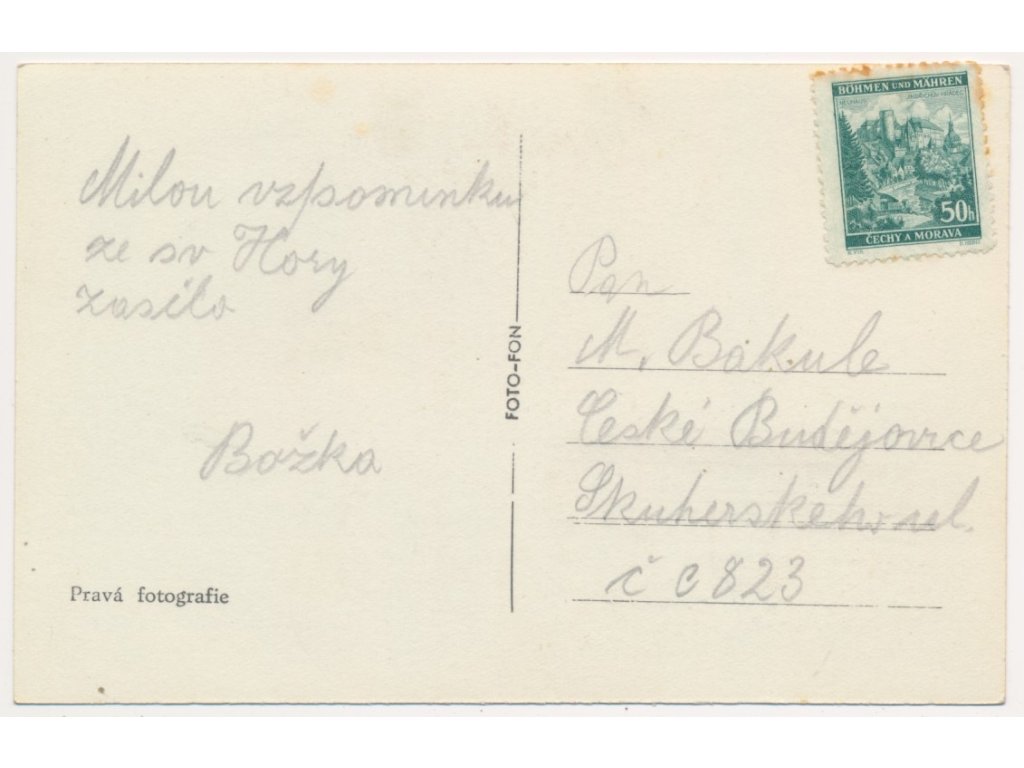 Milou vzpomínku
ze sv Hory
zasílá
Božka
Pravá fotografie
FOTO-FON
BÖHMEN UND MÄHREN
JINDŘICHŮV HRADEC
NEUHAUS
50h
ČECHY A MORAVA
Pan
M. Bakule
České Budějovice
Skuherského ul.
č c 823